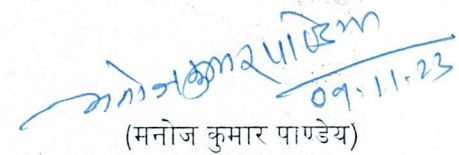 मनोज कुमार पाण्डेय
09.11.23
(मनोज कुमार पाण्डेय)